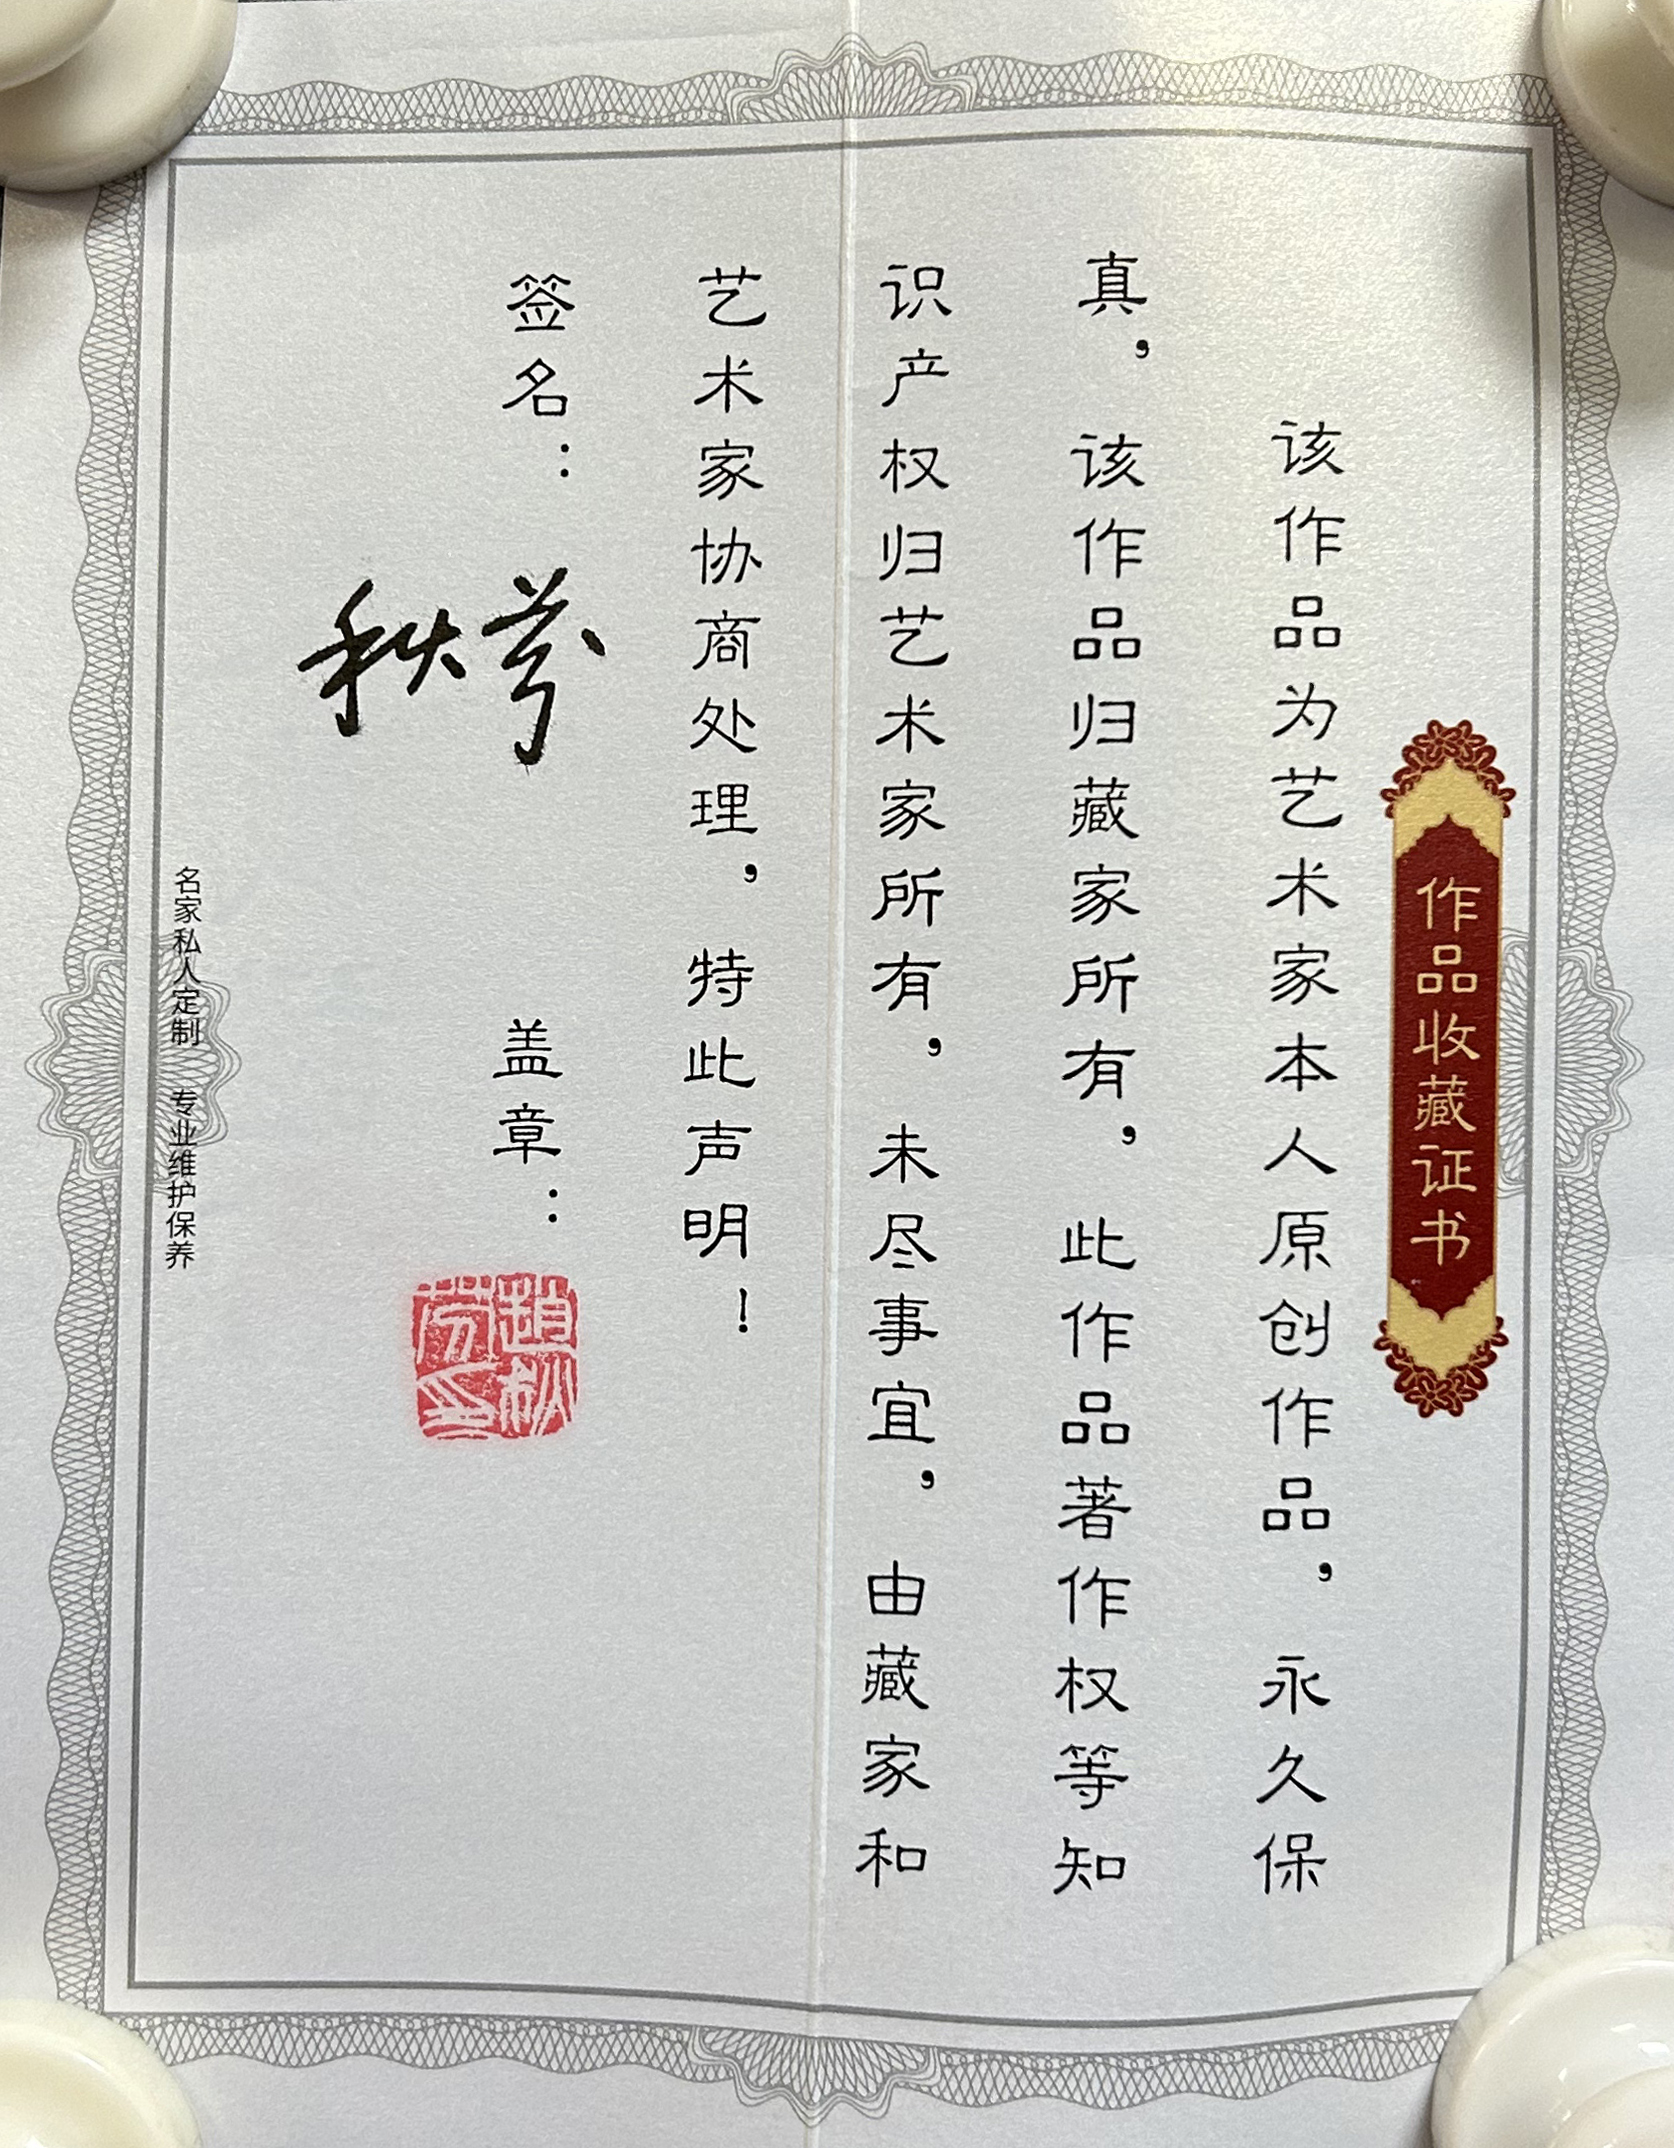 作品收藏证书
该作品为艺术家本人原创作品，永久保
真，该作品归藏家所有，此作品著作权等知
识产权归艺术家所有，未尽事宜，由藏家和
艺术家协商处理，特此声明！
签名：秋芬 盖章：
趙秋
芬印
名家私人定制 专业维护保养